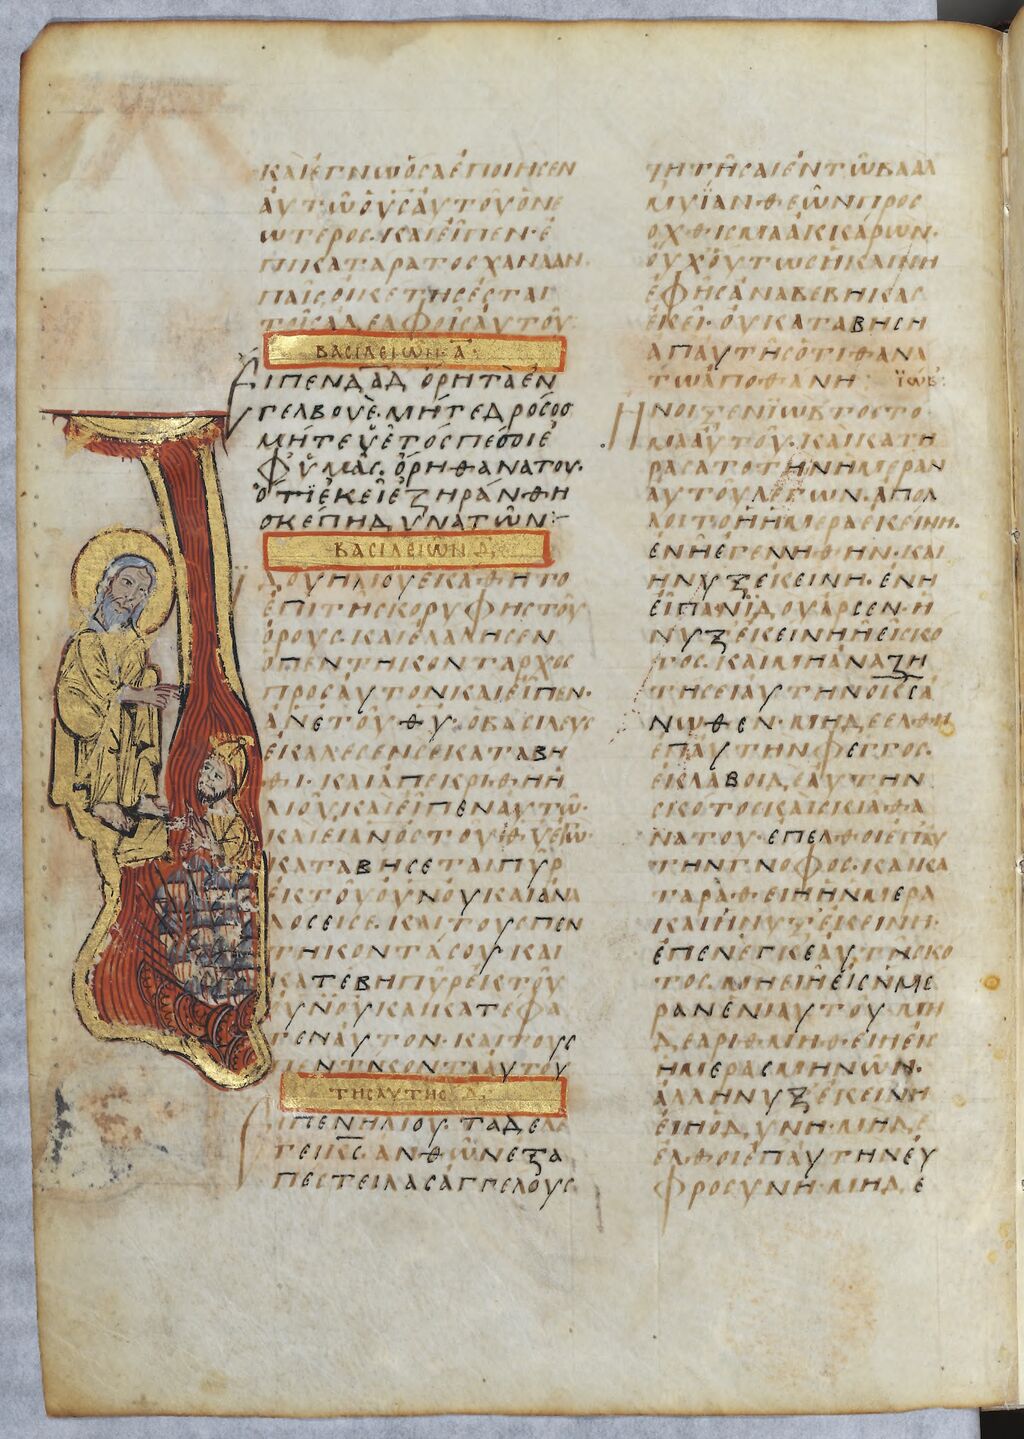 ΚΑΙ ΕΓΝΩ ΟΣΑ ΕΠΟΙΗΣΕΝ
ΑΥΤΩ Ο ΥΣ ΑΥΤΟΥ Ο ΝΕ
ΩΤΕΡΟΣ· ΚΑΙ ΕΙΠΕΝ· Ε
ΠΙΚΑΤΑΡΑΤΟΣ ΧΑΝΑΑΝ·
ΠΑΙΣ ΟΙΚΕΤΗΣ ΕΣΤΑΙ
ΤΟΙΣ ΑΔΕΛΦΟΙΣ ΑΥΤΟΥ:
ΒΑΣΙΛΕΙΩΝ· Α·
ΕΙΠΕΝ ΔΑΔ ΟΡΗ ΤΑ ΕΝ
ΓΕΛΒΟΥΕ· ΜΗΤΕ ΔΡΟΣΟΣ
ΜΗΤΕ ΥΕΤΟΣ ΠΕΣΟΙ Ε
Φ ΥΜΑΣ· ΟΡΗ ΘΑΝΑΤΟΥ·
ΟΤΙ ΕΚΕΙ ΕΞΗΡΑΝΘΗ
ΣΚΕΠΗ ΔΥΝΑΤΩΝ:
ΒΑΣΙΛΕΙΩΝ Δ:
ΙΔΟΥ ΗΛΙΟΥ ΕΚΑΘΗΤΟ
ΕΠΙ ΤΗΣ ΚΟΡΥΦΗΣ ΤΟΥ
ΟΡΟΥΣ· ΚΑΙ ΕΛΑΛΗΣΕΝ
Ο ΠΕΝΤΗΚΟΝΤΑΡΧΟΣ
ΠΡΟΣ ΑΥΤΟΝ ΚΑΙ ΕΙΠΕΝ·
ΑΝΕ ΤΟΥ ΘΥ· Ο ΒΑΣΙΛΕΥΣ
ΕΚΑΛΕΣΕΝ ΣΕ ΚΑΤΑΒΗ
ΘΙ· ΚΑΙ ΑΠΕΚΡΙΘΗ Η
ΛΙΟΥ ΚΑΙ ΕΙΠΕΝ ΑΥΤΩ·
ΚΑΙ ΕΙ ΑΝΟΣ ΤΟΥ ΘΥ ΕΓΩ·
ΚΑΤΑΒΗΣΕΤΑΙ ΠΥΡ
ΕΚ ΤΟΥ ΟΥΝΟΥ ΚΑΙ ΑΝΑ
ΛΩΣΕΙ ΣΕ· ΚΑΙ ΤΟΥΣ ΠΕΝ
ΤΗΚΟΝΤΑ ΣΟΥ· ΚΑΙ
ΚΑΤΕΒΗ ΠΥΡ ΕΚ ΤΟΥ
ΟΥΝΟΥ ΚΑΙ ΚΑΤΕΦΑ
ΓΕΝ ΑΥΤΟΝ· ΚΑΙ ΤΟΥΣ
ΠΕΝΤΗΚΟΝΤΑ ΑΥΤΟΥ
ΤΗΣ ΑΥΤΗΣ Δ:
ΕΙΠΕΝ ΗΛΙΟΥ· ΤΑΔΕ ΛΕ
ΓΕΙ ΚΣ ΑΝΘ ΩΝ ΕΞΑ
ΠΕΣΤΕΙΛΑΣ ΑΓΓΕΛΟΥΣ
ΖΗΤΗΣΑΙ ΕΝ ΤΩ ΒΑΑΛ
ΜΥΙΑΝ ΘΕΩΝ ΠΡΟΣ
ΟΧΘΙΣΜΑ ΑΚΚΑΡΩΝ·
ΟΥΧ ΟΥΤΩΣ Η ΚΛΙΝΗ
ΕΦ ΗΣ ΑΝΑΒΕΒΗΚΑΣ
ΕΚΕΙ· ΟΥ ΚΑΤΑΒΗΣΗ
ΑΠ ΑΥΤΗΣ ΟΤΙ ΘΑΝΑ
ΤΩ ΑΠΟΘΑΝΗ: ΙΩΒ:
ΗΝΟΙΞΕΝ ΙΩΒ ΤΟ ΣΤΟ
ΜΑ ΑΥΤΟΥ· ΚΑΙ ΚΑΤΗ
ΡΑΣΑΤΟ ΤΗΝ ΗΜΕΡΑΝ
ΑΥΤΟΥ ΛΕΓΩΝ· ΑΠΟΛ
ΛΟΙΤΟ Η ΗΜΕΡΑ ΕΚΕΙΝΗ·
ΕΝ Η ΕΓΕΝΗΘΗΝ· ΚΑΙ
Η ΝΥΞ ΕΚΕΙΝΗ· ΕΝ Η
ΕΙΠΑΝ ΙΔΟΥ ΑΡΣΕΝ· Η
ΝΥΞ ΕΚΕΙΝΗ ΗΕΙ ΣΚΟ
ΤΟΣ· ΚΑΙ ΜΗ ΑΝΑΖΗ
ΤΗΣΕΙ ΑΥΤΗΝ Ο ΚΣ Α
ΝΩΘΕΝ· ΜΗΔΕ ΕΛΘΗ
ΕΠ ΑΥΤΗΝ ΦΕΓΓΟΣ·
ΕΚΛΑΒΟΙ ΔΕ ΑΥΤΗΝ
ΣΚΟΤΟΣ ΚΑΙ ΣΚΙΑ ΘΑ
ΝΑΤΟΥ· ΕΠΕΛΘΟΙ ΕΠ ΑΥ
ΤΗΝ ΓΝΟΦΟΣ· ΚΑΙ ΚΑ
ΤΑΡΑΘΕΙΗ Η ΗΜΕΡΑ
ΚΑΙ Η ΝΥΞ ΕΚΕΙΝΗ·
ΕΠΕΝΕΓΚΕ ΑΥΤΗ ΣΚΟ
ΤΟΣ· ΜΗ ΕΙΗ ΕΙΣ ΗΜΕ
ΡΑΝ ΕΝΙΑΥΤΟΥ· ΜΗ
ΔΕ ΑΡΙΘΜΗΘΕΙΗ ΕΚ
ΗΜΕΡΑΣ ΜΗΝΩΝ·
ΑΛΛ Η ΝΥΞ ΕΚΕΙΝΗ
ΕΙΗ ΟΔΥΝΗ· ΜΗΔΕ
ΕΛΘΟΙ ΕΠ ΑΥΤΗΝ ΕΥ
ΦΡΟΣΥΝΗ· ΜΗΔΕ